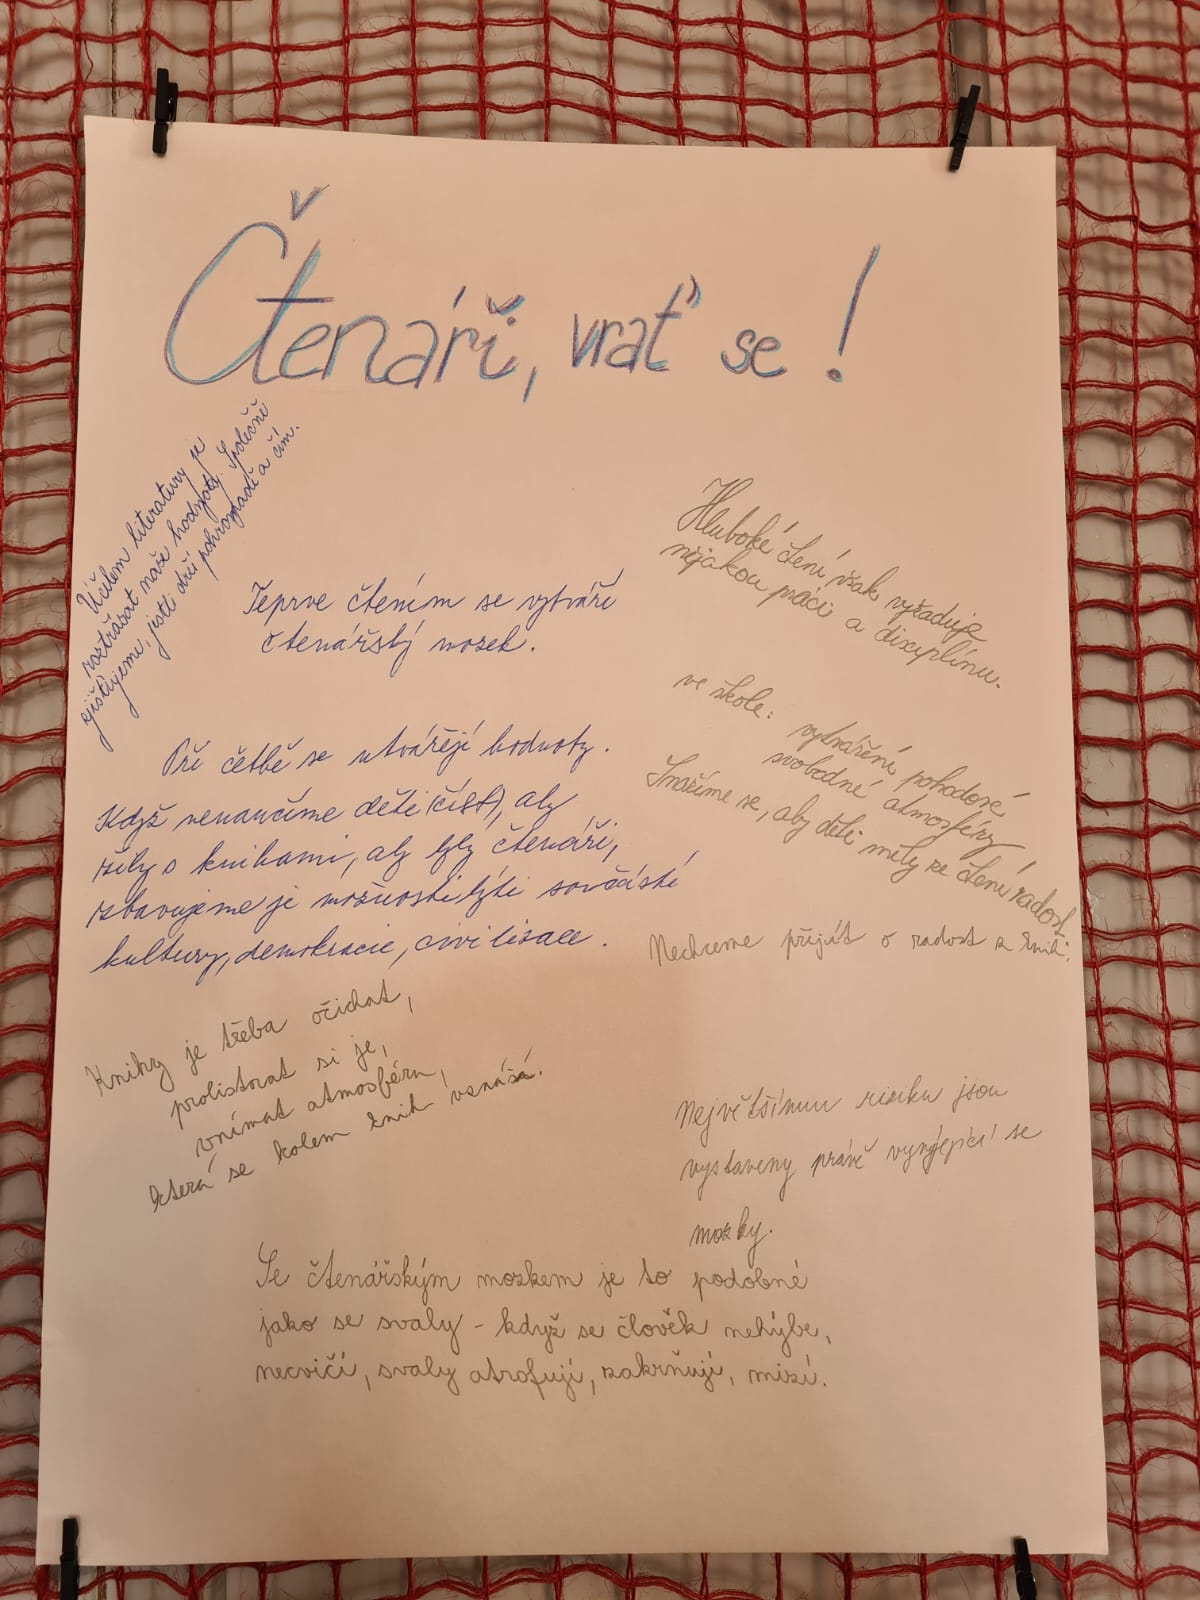 Čtenáři, vrať se!
Účelem literatury je
roztřásat naše hodnoty. Společně
zjišťujeme, jestli drží pohromadě a čím.
Teprve čtením se vytváří
čtenářský mozek.
Při četbě se utvářejí hodnoty.
Když nenaučíme děti (číst), aby
žily s knihami, aby byly čtenáři,
zbavujeme je možnosti být součástí
kultury, demokracie, civilizace.
Knihy je třeba očichat,
prolistovat si je,
vnímat atmosféru,
která se kolem knih vznáší.
Hluboké čtení však vyžaduje
nějakou práci a disciplínu.
ve škole: vytváření pohodové
svobodné atmosféry
Snažíme se, aby děti měly ze čtení radost
Nechceme přijít o radost z knih.
Největšímu riziku jsou
vystaveny právě vyvíjející se
mozky.
Se čtenářským mozkem je to podobné
jako se svaly - když se člověk nehýbe,
necvičí, svaly atrofují, zakrňují, mizí.